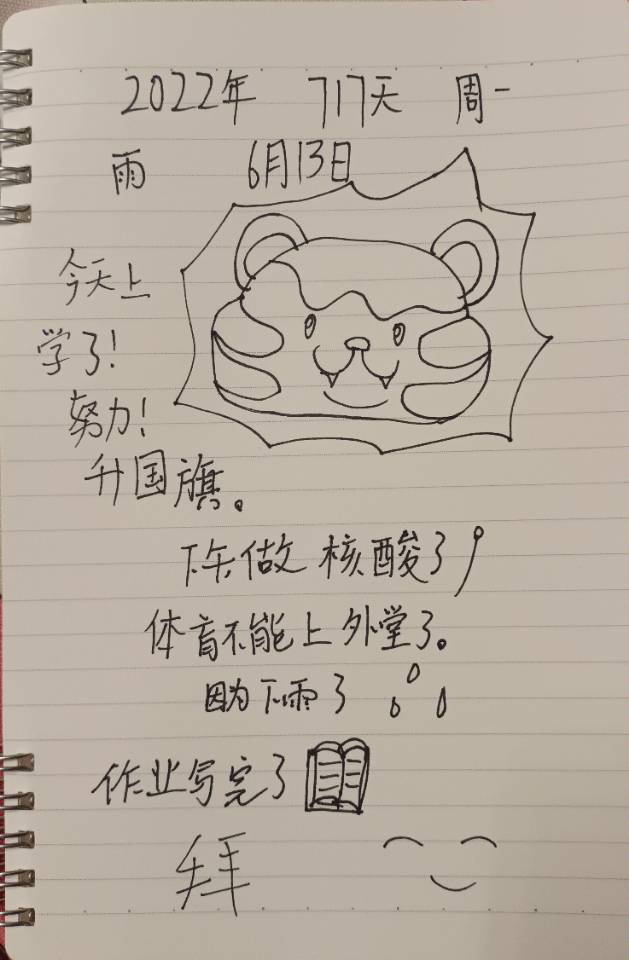 2022年 717天 周一
雨 6月13日
今天上
学了!
努力!
升国旗。
下午做核酸了
体育不能上外堂了。
因为下雨了
作业写完了
拜